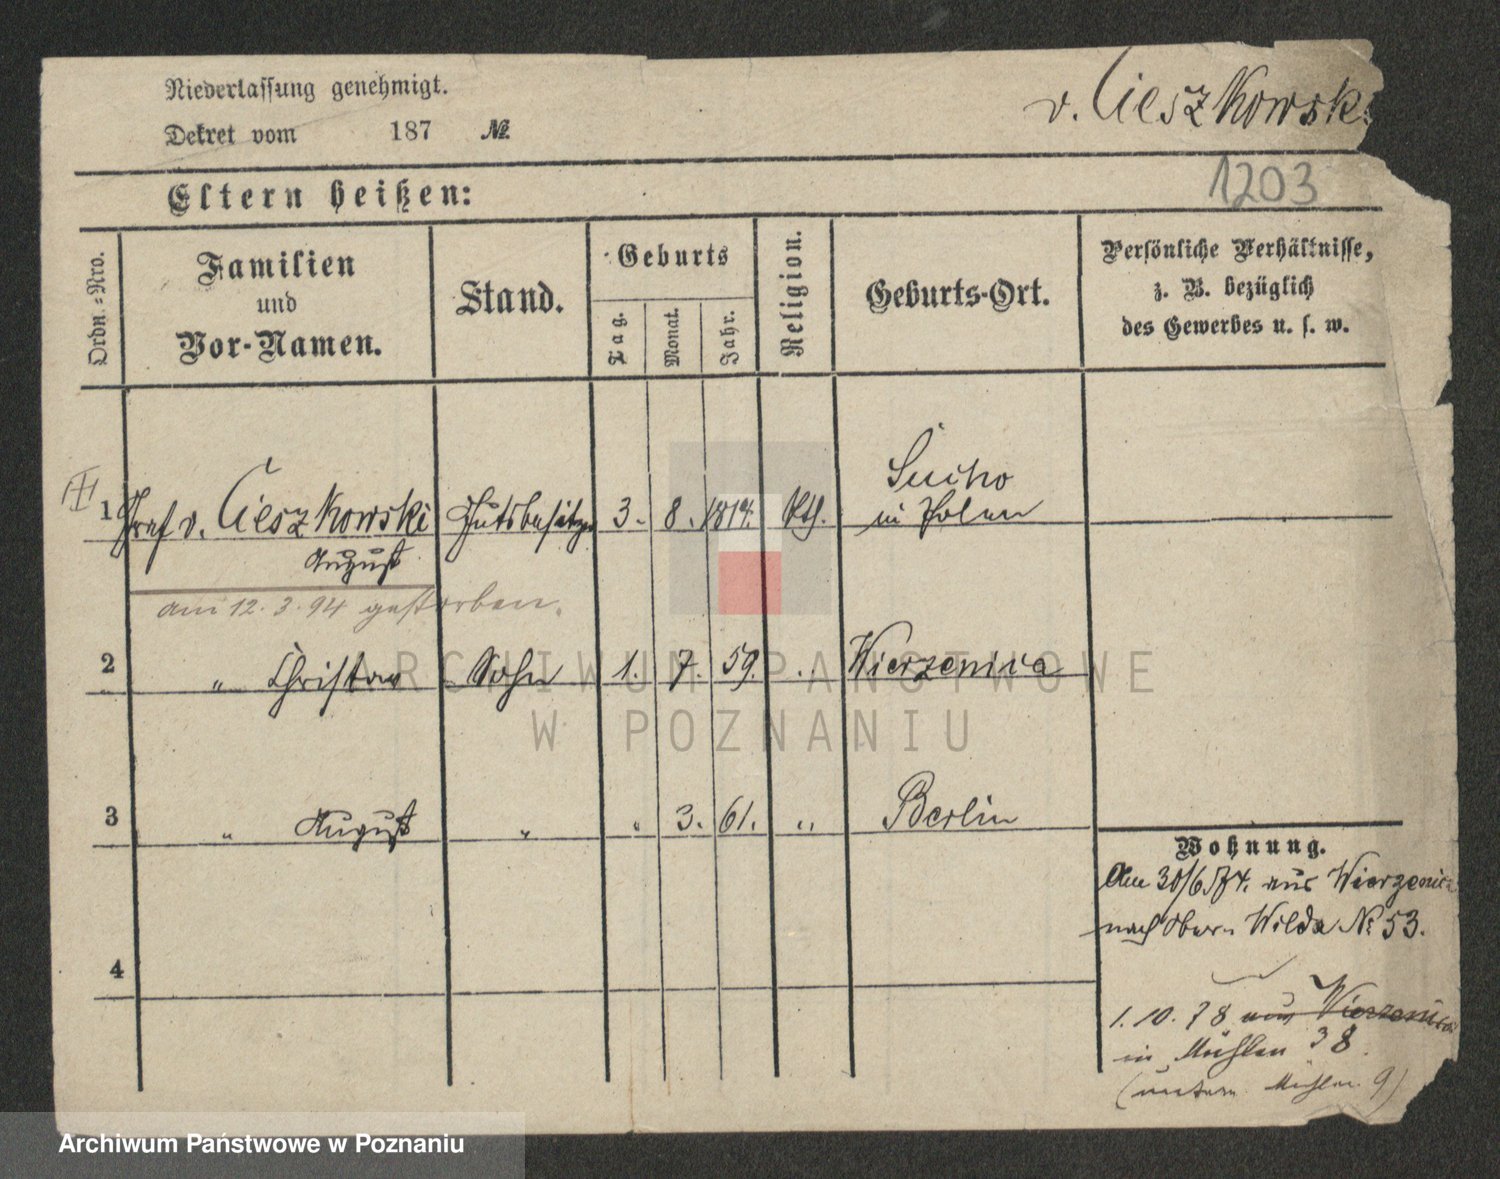 Niederlassung genehmigt.
Dekret vom 187 №
v. Cieszkowski
1203
Eltern heißen:
Ordn.=Nro.
Familien
und
Vor-Namen.
Stand.
Geburts
Tag.
Monat.
Jahr.
Religion.
Geburts-Ort.
Persönliche Verhältnisse,
z. B. bezüglich
des Gewerbes u. s. w.
1 Graf v. Cieszkowski Gutsbesitzer 3. 8. 1814. Kth. Sucho
in Polen
August
am 12. 3. 94 gestorben.
2 " Christow Sohn 1. 7. 59. " Wierzenica
3 " August " " 3. 61. " Berlin
4
Wohnung.
Am 30/6 74. aus Wierzenica
nach Ober- Wilda № 53.
1. 10. 78 aus Wierzenica
in Mühlen 38
(untern Mühlen 9)
ARCHIWUM PAŃSTWOWE
W POZNANIU
Archiwum Państwowe w Poznaniu